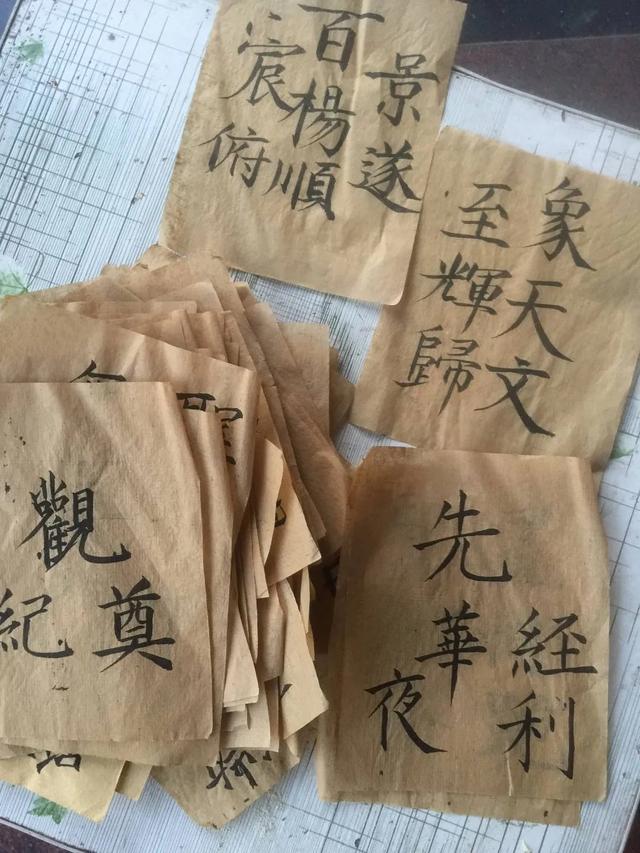 景遂
百楊順
宸俯
象天文
至輝歸
経利
先華夜
奠
觀
紀